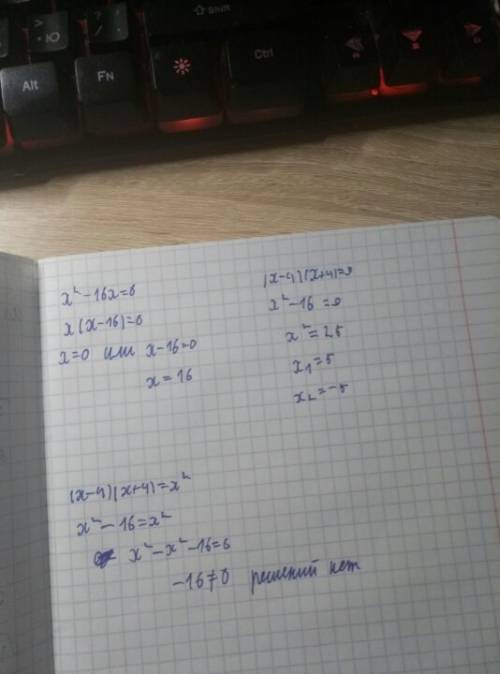 Shift
> Ю
? /
Alt
FN
Ctrl
x² - 16x = 0
x(x-16)=0
x=0 или x-16=0
x = 16
(x-4)(x+4)=9
x² - 16 = 9
x² = 25
x₁ = 5
x₂ = -5
(x-4)(x+4)=x²
x² - 16 = x²
x² - x² - 16 = 0
-16 ≠ 0 решений нет